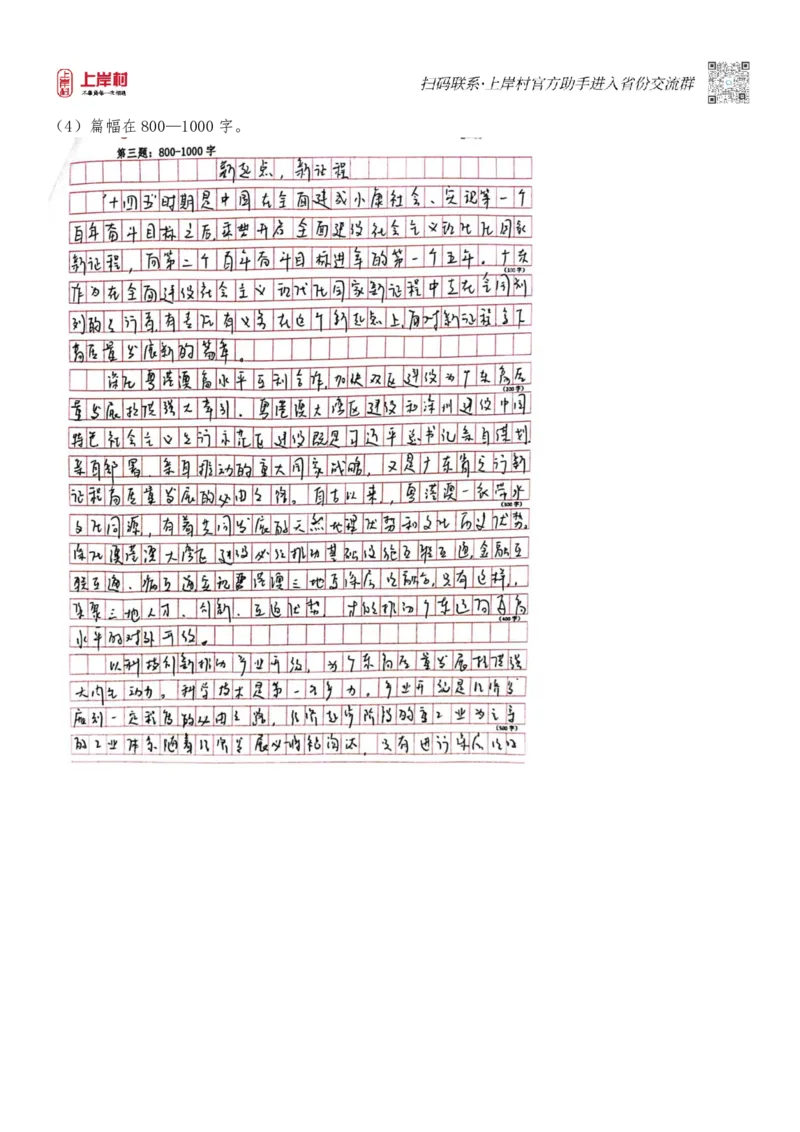 上岸村
不暴局备一次相遇
扫码联系·上岸村官方助手进入省份交流群
（4）篇幅在 800—1000 字。
第三题：800-1000 字
新起点，新征程
"十四五"时期是中国在全面建成小康社会、实现第一个
百年奋斗目标之后，乘势开启全面建设社会主义现代化国家
新征程，向第二个百年奋斗目标进军的第一个五年。广东
(100字)
作为在全面建设社会主义现代化国家新征程中走在全国前
列的先行者，有责任有义务在这个新起点上，面对新征程写下
高质量发展新的篇章。
深化粤港澳高水平互利合作，加快双区建设为广东高质
(200字)
量发展提供强大牵引。粤港澳大湾区建设和深圳建设中国
特色社会主义先行示范区建设既是习近平总书记亲自谋划、
亲自部署、亲自推动的重大国家战略，又是广东省先行新
征程高质量发展的必由之路。自古以来，粤港澳一衣带水
(300字)
文化同源，有着共同发展的天然地理优势和文化历史优势。
深化粤港澳大湾区建设必须推动基础设施互联互通，金融互
联互通，三地再深层次融合，只有这样，
集聚三地人才、创新、互通优势，才能推动广东迈向更高
(400字)
水平的对外开放。
以科技创新推动产业升级，为广东高质量发展提供强
大内生动力。科学技术是第一生产力，产业升级是经济发
展到一定程度的必由之路，经济起步阶段的重工业为主导
(500字)
的工业体系随着经济发展必将，只有进行深层次的